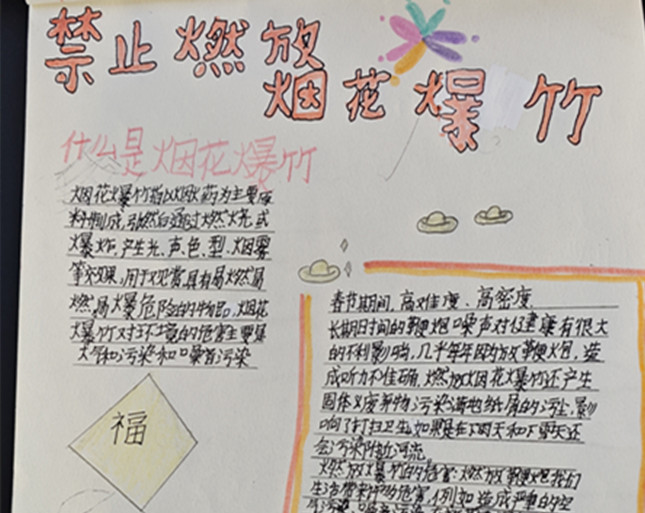 禁止燃放
烟花爆竹
什么是烟花爆竹
烟花爆竹指以烟火药为主要原
料制成,引燃后通过燃烧或
爆炸,产生光、声、色、型、烟雾
等效果,用于观赏,具有易燃易
燃易爆危险的物品,烟花
爆竹对环境的危害主要是
大气和污染和噪音污染
福
春节期间,高难度、高密度
长期时间的鞭炮噪声对健康有很大
的不利影响,几乎每年因为放鞭炮,造
成听力不准确,燃放烟花爆竹还产生
固体义废弃物污染满地纸屑的污尘,影
响了打扫卫生,如果是在下雨天和下雪天还
会污染附近河流
燃放爆竹的危害:燃放鞭炮给我们
生活带来危害,例如造成严重的空